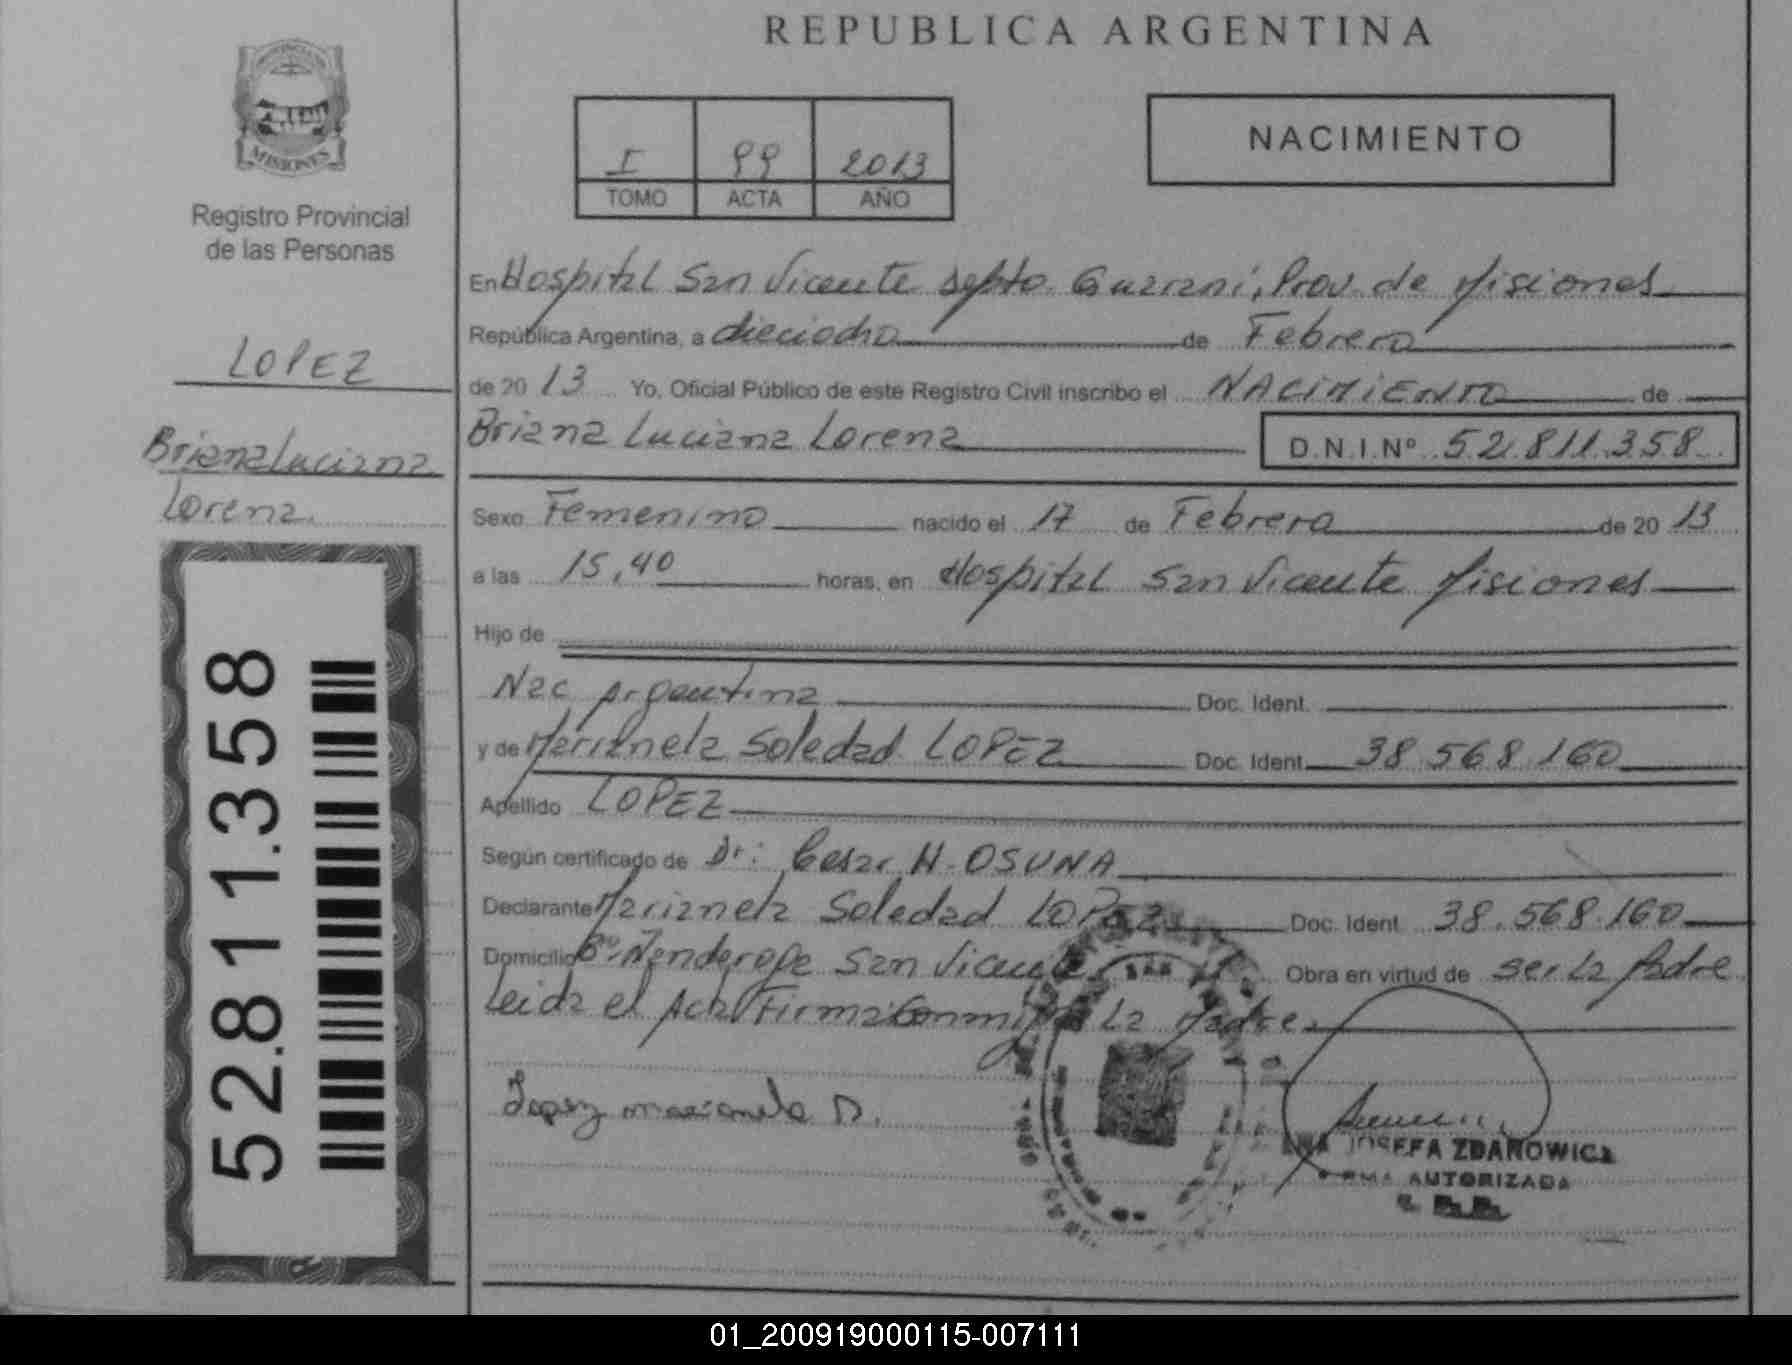 REPUBLICA ARGENTINA
MISIONES
Registro Provincial
de las Personas
LOPEZ
Briana Luciana
Lorena
52.811.358
I 99 2013
TOMO ACTA AÑO
NACIMIENTO
En Hospital San Vicente depto Guarani, Prov. de Misiones
República Argentina, a dieciocho de Febrero
de 20 13 Yo, Oficial Público de este Registro Civil inscribo el NACIMIENTO de
Briana Luciana Lorena D.N.I.Nº 52.811.358
Sexo Femenino nacido el 17 de Febrero de 20 13
a las 15,40 horas, en Hospital San Vicente Misiones
Hijo de
Nac Argentina Doc. Ident.
y de Marianela Soledad LOPEZ Doc. Ident. 38.568.160
Apellido LOPEZ
Según certificado de Dr: Cesar H. OSUNA
Declarante Marianela Soledad LOPEZ Doc. Ident 38.568.160
Domicilio Bº San Vicente Obra en virtud de ser la Madre
Leida el Acta Firma Conmigo La Madre
Lopez marianela
JOSEFA ZDANOWICZ
FIRMA AUTORIZADA
01_200919000115-007111